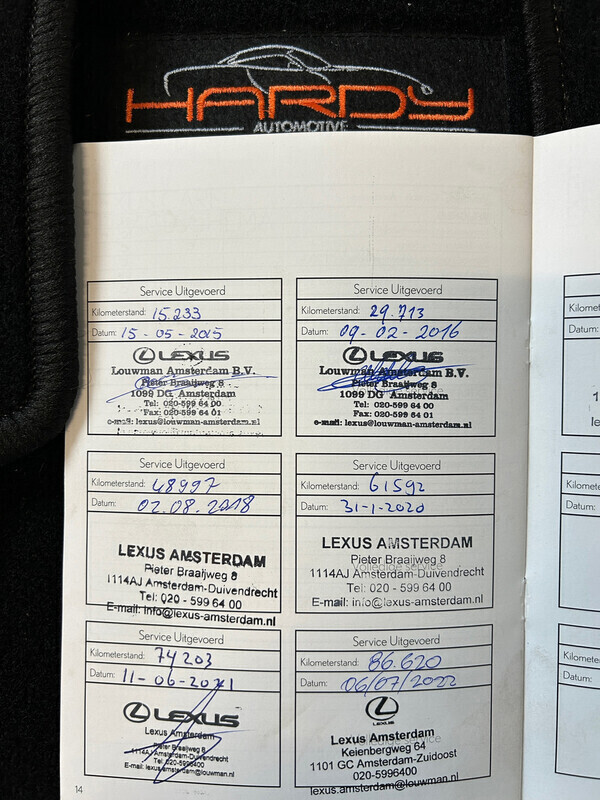 HARDY
AUTOMOTIVE
Service Uitgevoerd
Kilometerstand: 15.233
Datum: 15-05-2015
LEXUS
Louwman Amsterdam B.V.
Pieter Braaijweg 8
1099 DG Amsterdam
Tel: 020-599 64 00
Fax: 020-599 64 01
e-mail: lexus@louwman-amsterdam.nl
Service Uitgevoerd
Kilometerstand: 29.713
Datum: 09-02-2016
LEXUS
Louwman Amsterdam B.V.
Pieter Braaijweg 8
1099 DG Amsterdam
Tel: 020-599 64 00
Fax: 020-599 64 01
e-mail: lexus@louwman-amsterdam.nl
Service Uitgevoerd
Kilometerstand: 48997
Datum: 02.08.2018
LEXUS AMSTERDAM
Pieter Braaijweg 8
1114AJ Amsterdam-Duivendrecht
Tel: 020 - 599 64 00
E-mail: info@lexus-amsterdam.nl
Service Uitgevoerd
Kilometerstand: 61592
Datum: 31-1-2020
LEXUS AMSTERDAM
Pieter Braaijweg 8
Volledige service
1114AJ Amsterdam-Duivendrecht
Tel: 020 - 599 64 00
E-mail: info@lexus-amsterdam.nl
Service Uitgevoerd
Kilometerstand: 74203
Datum: 11-06-2021
LEXUS
Lexus Amsterdam
Pieter Braaijweg 8
1114AJ Amsterdam-Duivendrecht
Tel. 020-5996400
E-mail: lexus.amsterdam@louwman.nl
Service Uitgevoerd
Kilometerstand: 86.620
Datum: 06/07/2022
LEXUS
Lexus Amsterdam
Volledige service
Keienbergweg 64
1101 GC Amsterdam-Zuidoost
020-5996400
lexus.amsterdam@louwman.nl
14
Kilome
Datum:
Kilome
Datum:
Kilome
Datum: